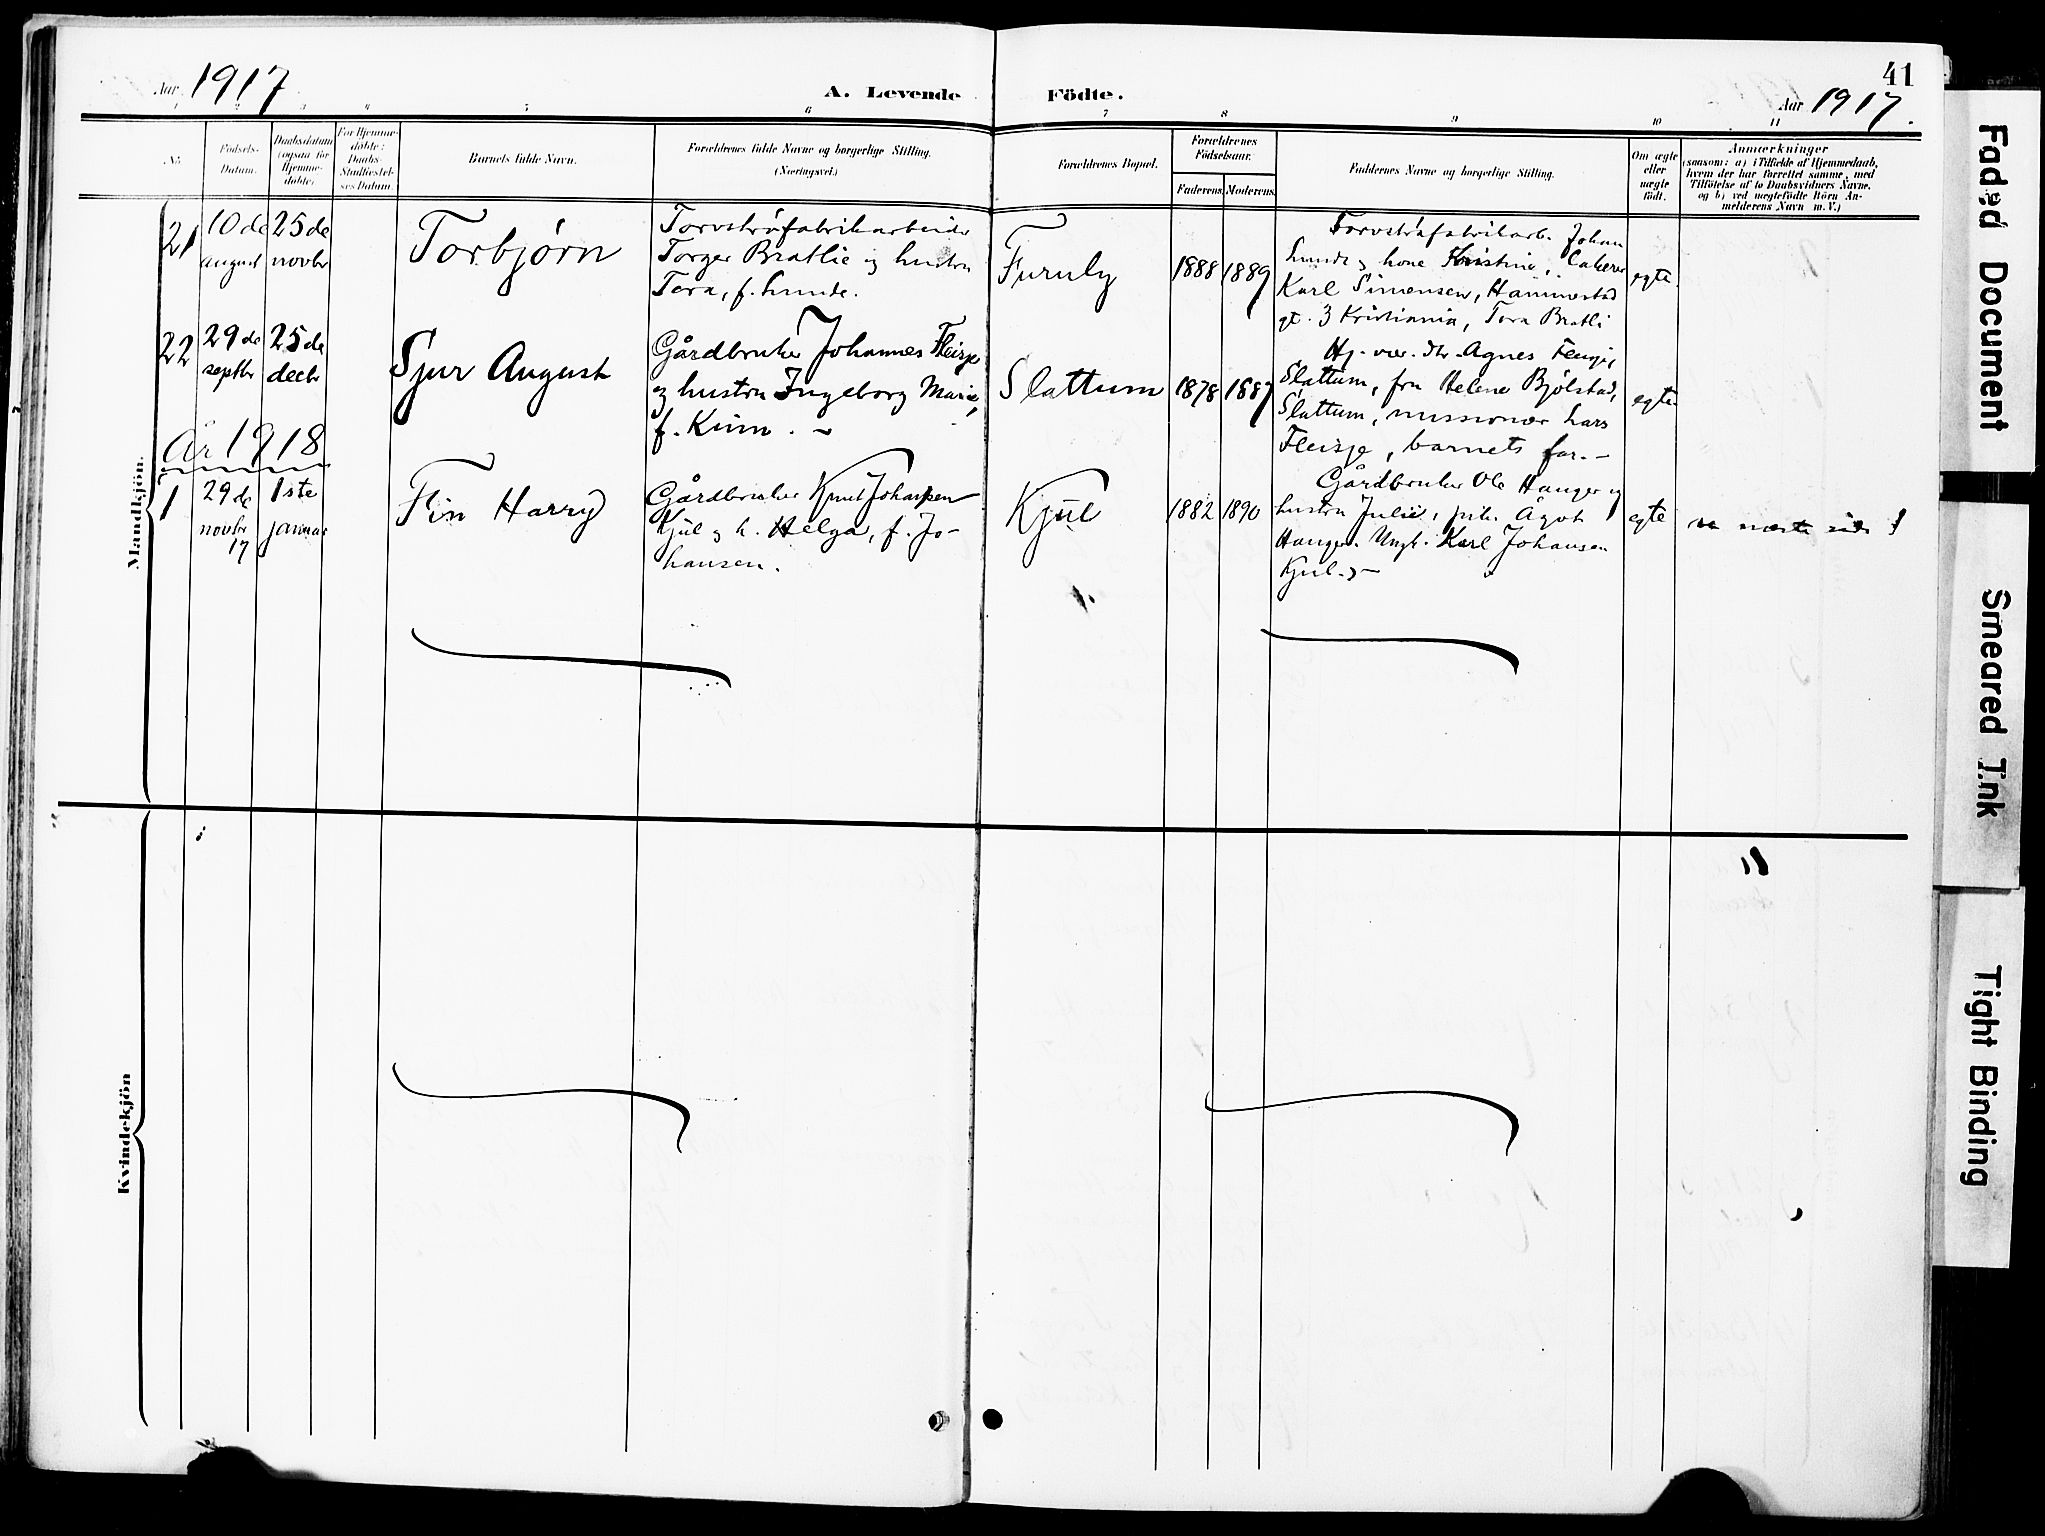 41
Aar 1917
A. Levende Födte.
Aar 1917.
1 2 3 4 5 6 7 8 9 10 11
No.
Födsels-
Datum.
Daabsdatum
(ogsaa for
Hjemme-
døbte)
For Hjemme-
døbte:
Daabs-
Stadfæstel-
ses Datum.
Barnets fulde Navn.
Forældrenes fulde Navne og borgerlige Stilling.
(Næringsvei.)
Forældrenes Bopæl.
Forældrenes
Födselsaar.
Faderens. Moderens.
Faddernes Navne og borgerlige Stilling.
Om ægte
eller
uægte
födt.
Anmærkninger
(saasom: a) i Tilfælde af Hjemmedaab,
hvem der har forrettet samme, med
Tilföielse af to Daabsvidners Navne.
og b) ved uægtefödte Börn An-
melderens Navn m. V.)
Mandkjön.
21
10de
august
25de
novbr
Torbjørn
Torvströfabrikarbeider
Torger Bratlie og hustru
Tora, f. Lunde.
Furuly
1888 1889
Torvströfabrikarb. Johan
Lunde og kone Kristine,
Karl Simensen, Hammerstad
gt. 3 Kristiania, Tora Bratli
egte.
22
29de
septbr
25de
decbr
Sjur August
Gårdbruker Johannes Fleisje
og hustru Ingeborg Marie,
f. Kinn. -
Slattum
1878 1887
Agnes
Slattum, fru Helene Bjølstad,
Slattum, missionær Lars
Fleisje, barnets far. -
egte
År 1918
1
29de
novbr
17
1ste
januar
Fin Harry
Gårdbruker Knut Johansen
Kjul og h. Helga, f. Jo-
hansen.
Kjul
1882 1890
Gårdbruker Ole Hauger og
hustru Julie, pike Agot
Hauger. Ungk. Karl Johansen
Kjul. -
egte
næste side !
Kvindekjön
Faded Document
Smeared Ink
Tight Binding